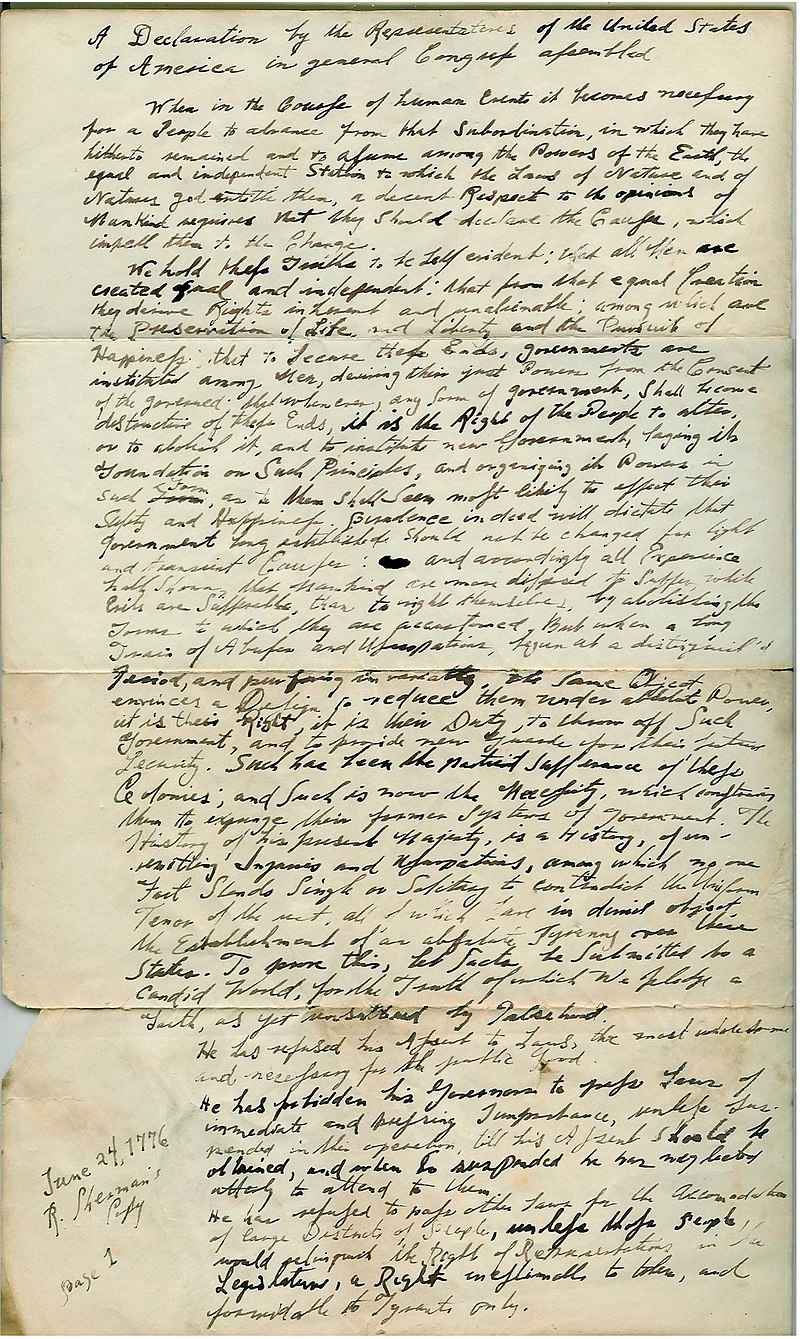 A Declaration by the Representatives of the United States
of America in general Congress assembled
When in the Course of human Events it becomes necessary
for a People to advance from that Subordination, in which they have
hitherto remained and to assume among the Powers of the Earth, the
equal and independent Station to which the Laws of Nature and of
Natures god entitle them, a decent Respect to the opinions of
Mankind requires that they Should declare the Causes, which
impell them to the Change.
We hold these Truths to be Self evident; that all Men are
created equal and independent; that from that equal Creation
they derive Rights inherent and unalienable; among which are
the Preservation of Life, and Liberty, and the Pursuit of
Happiness; that to Secure these Ends, governments are
instituted among Men, deriving their just Powers from the Consent
of the governed; that whenever, any form of government, Shall become
destructive of these Ends, it is the Right of the People to alter,
or to abolish it, and to institute new Government, laying its
Foundation on Such Principles, and organizing its Powers in
Form
Such, as to them Shall Seem most likely to effect their
Safety and Happiness. prudence indeed will dictate that
Government long established should not be changed for light
and transient Causes: and accordingly all Experience
hath Shown, that Mankind are more disposed to Suffer, while
Evils are Sufferable, than to right themselves, by abolishing the
Forms to which they are accustomed. But when a long
Train of Abuses and Usurpations, begun at a distinguish'd
Period, and pursuing invariably, the Same Object,
envinces a Design to reduce them under absolute Power,
it is their Right, it is their Duty, to throw off Such
Government, and to provide new Guards for their future
Security. Such has been the patient Sufferance of these
Colonies; and Such is now the Necessity, which constrains
them to expunge their former Systems of Government. The
History of his present Majesty, is a History, of un-
remitting Injuries and Usurpations, among which no one
Fact Stands Single or Solitary to contradict the Uniform
Tenor of the rest, all of which have in direct object,
the Establishment of an absolute Tyranny over these
States. To prove this, let Facts be Submitted to a
Candid World, for the Truth of which We pledge a
Faith, as yet unsullied by Falsehood.
He has refused his Assent to Laws, the most wholesome
and necessary for the public Good.
He has forbidden his Governors to pass Laws of
immediate and pressing Importance, unless sus-
pended in their operation, till his Assent Should be
obtained; and when so suspended he has neglected
utterly to attend to them.
He has refused to pass other Laws for the Accomodation
of large Districts of People, unless those People
would relinquish the Right of Representation in the
Legislature, a Right inestimable to them, and
formidable to Tyrants only.
June 24, 1776
R. Sherman's
Copy
page 1